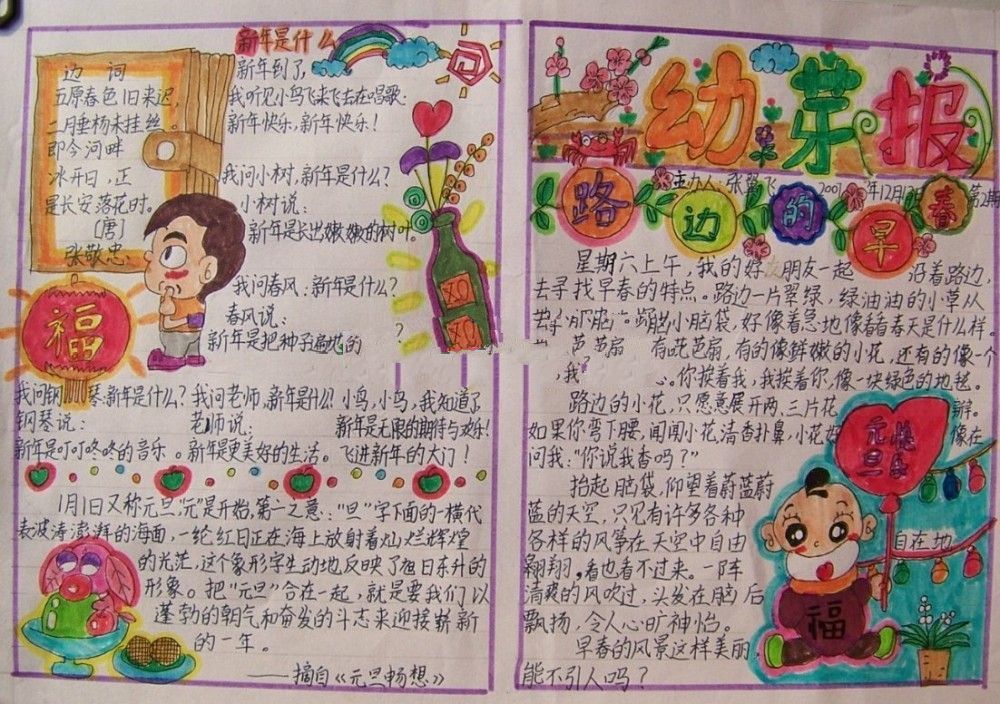 新年是什么
边 词
五原春色旧来迟,
二月垂杨未挂丝。
即今河畔
冰开日,正
是长安落花时。
〔唐〕
张敬忠
新年到了,
我听见小鸟飞来飞去在唱歌:
新年快乐,新年快乐!
我问小树,新年是什么?
小树说:
新年是长出嫩嫩的树叶。
我问春风:新年是什么?
春风说:
新年是把种子遍地的 ?
福
XO
XO
我问钢琴:新年是什么?
钢琴说:
新年是叮叮咚咚的音乐。
我问老师,新年是什么!
老师说:
新年是更美好的生活。
小鸟,小鸟,我知道了
新年是无限的期待与欢乐!
飞进新年的大门!
1月1日又称元旦,“元”是开始,第一之意:“旦”字下面的一横代
表波涛澎湃的海面,一轮红日正在海上放射着灿烂辉煌
的光茫,这个象形字生动地反映了旭日东升的
形象。把“元旦”合在一起,就是要我们以
蓬勃的朝气和奋发的斗志来迎接崭新
的一年。
——摘自《元旦畅想》
幼芽报
主办人:张 飞 2001年12月
路边的早春
星期六上午,我的好朋友一起 沿着路边,
去寻找早春的特点。路边一片翠绿,绿油油的小草从
小脑袋,好像着急地像看看春天是什么样。
芭扇 有的像鲜嫩的小花,还有的像一个
,我? 。你挨着我,我挨着你,像一块绿色的地毯。
路边的小花,只愿意展开两、三片花 瓣。
如果你弯下腰,闻闻小花,清香扑鼻,小花好 像在
问我:“你说我香吗?”
抬起脑袋,仰望着蔚蓝蔚
蓝的天空,只见有许多各种
各样的风筝在天空中自由 自在地
翱翔,看也看不过来。一阵
清爽的风吹过,头发在脑后
飘扬,令人心旷神怡。
早春的风景这样美丽
能不引人吗?
元旦
快乐
福